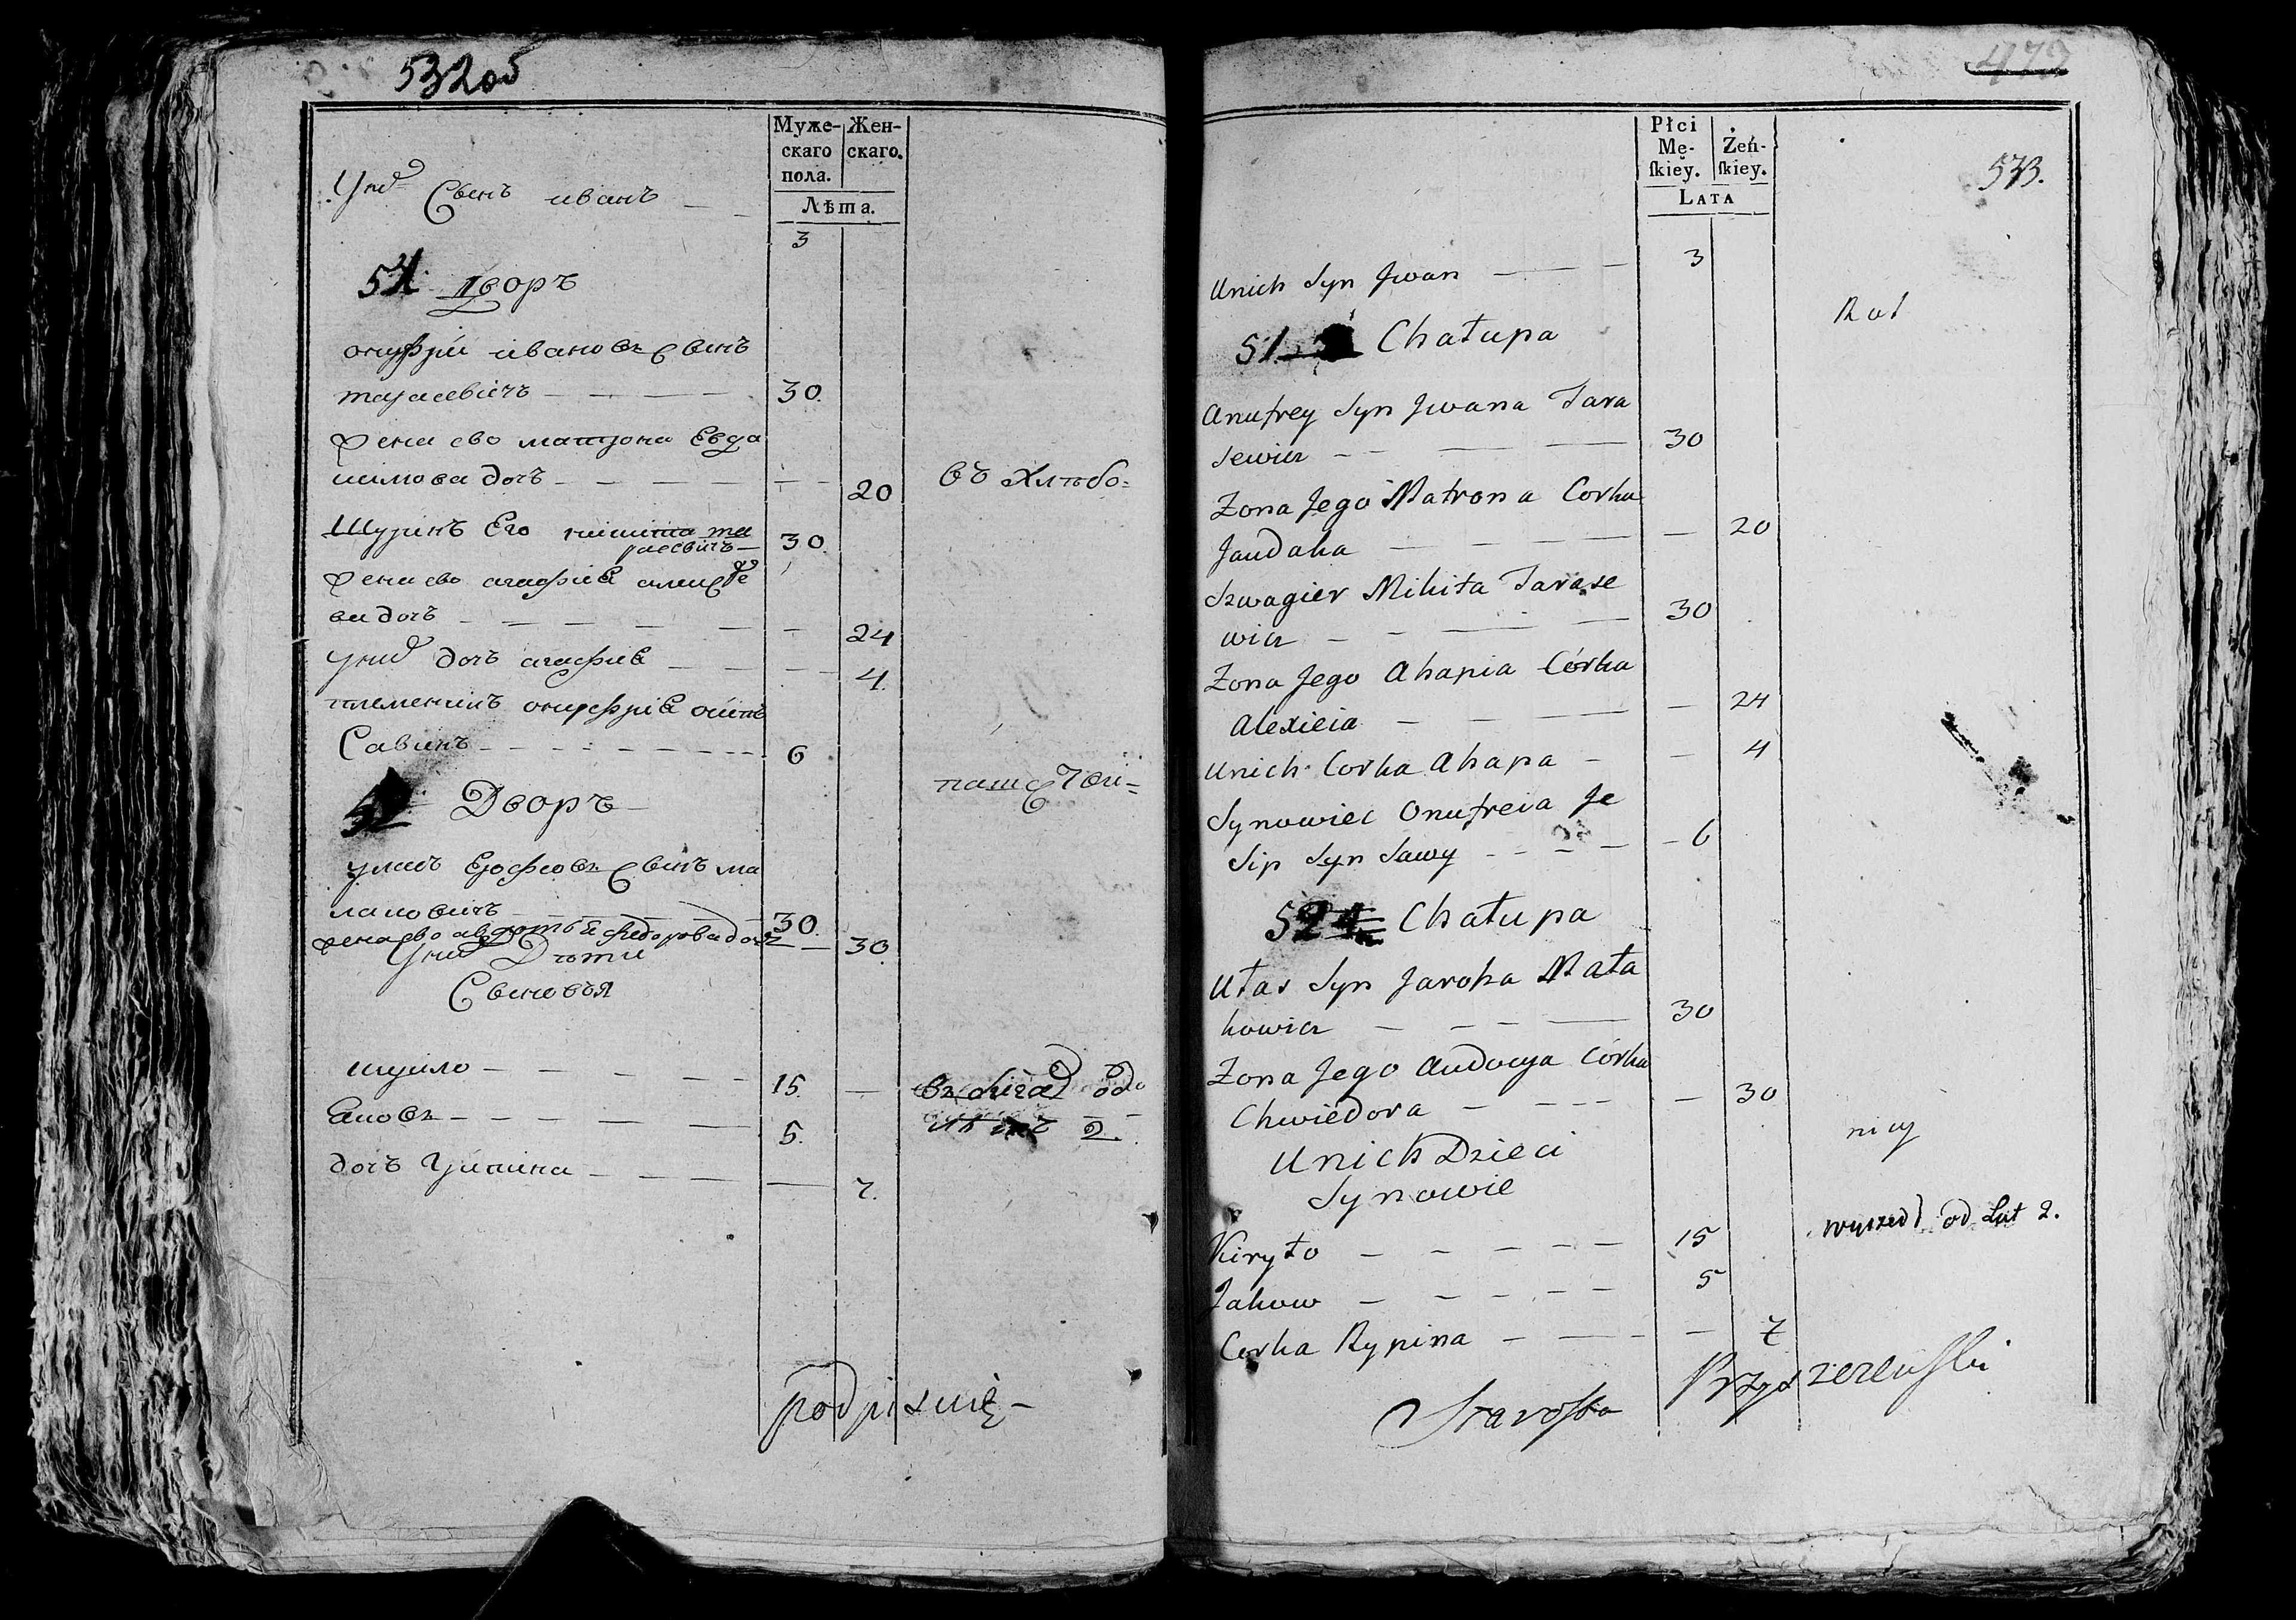 532об
Муже-
скаго
пола.
Жен-
скаго.
Лѣта.
Сынъ иванъ
3
51 Дворъ
онуфрій ивановъ Сынъ
тарасевичъ 30.
жена ево матрона Евда
кимова дочъ 20
въ хлѣбо=
Шуринъ Его никита та
расевичъ 30.
жена ево агафиѧ алексѣе
ва дочъ 24
дочъ агафиѧ 4.
племеникъ онуфриѧ
Савинъ 6
52 Дворъ
пашестви=
уласъ Ерофѣовъ Сынъ ма
лаховичъ 30.
жена ево авдотьѧ федорова дочъ 30
Дѣти
Сыновья
кирило 15.
Яковъ 5.
2.
дочъ 7.
podpisuię
473
573.
Płci
Mę-
ſkiey.
Żeń-
ſkiey.
LATA
Unich Syn Jwan 3
Rot
51. Chałupa
Anufrey Syn Jwana Tara
sewicz 30
Zona Jego Matrona Corka
Jaudaka 20
Szwagier Mikita Tarase
wicz 30
Zona Jego Ahapia Córka
Alexieia 24
Unich Corka Ahapa 4
Synowiec Onufreia Je
Sip Syn Sawy 6
52 Chałupa
Ułas Syn Jarocha Mała
howicz 30
Zona Jego Audocya Córka
Chwiedora 30
nicy
Unich Dzieci
Synowie
Kiryło 15
wyszedł od Lat 2.
Jakow 5
Corka Rypina 7
Starosta